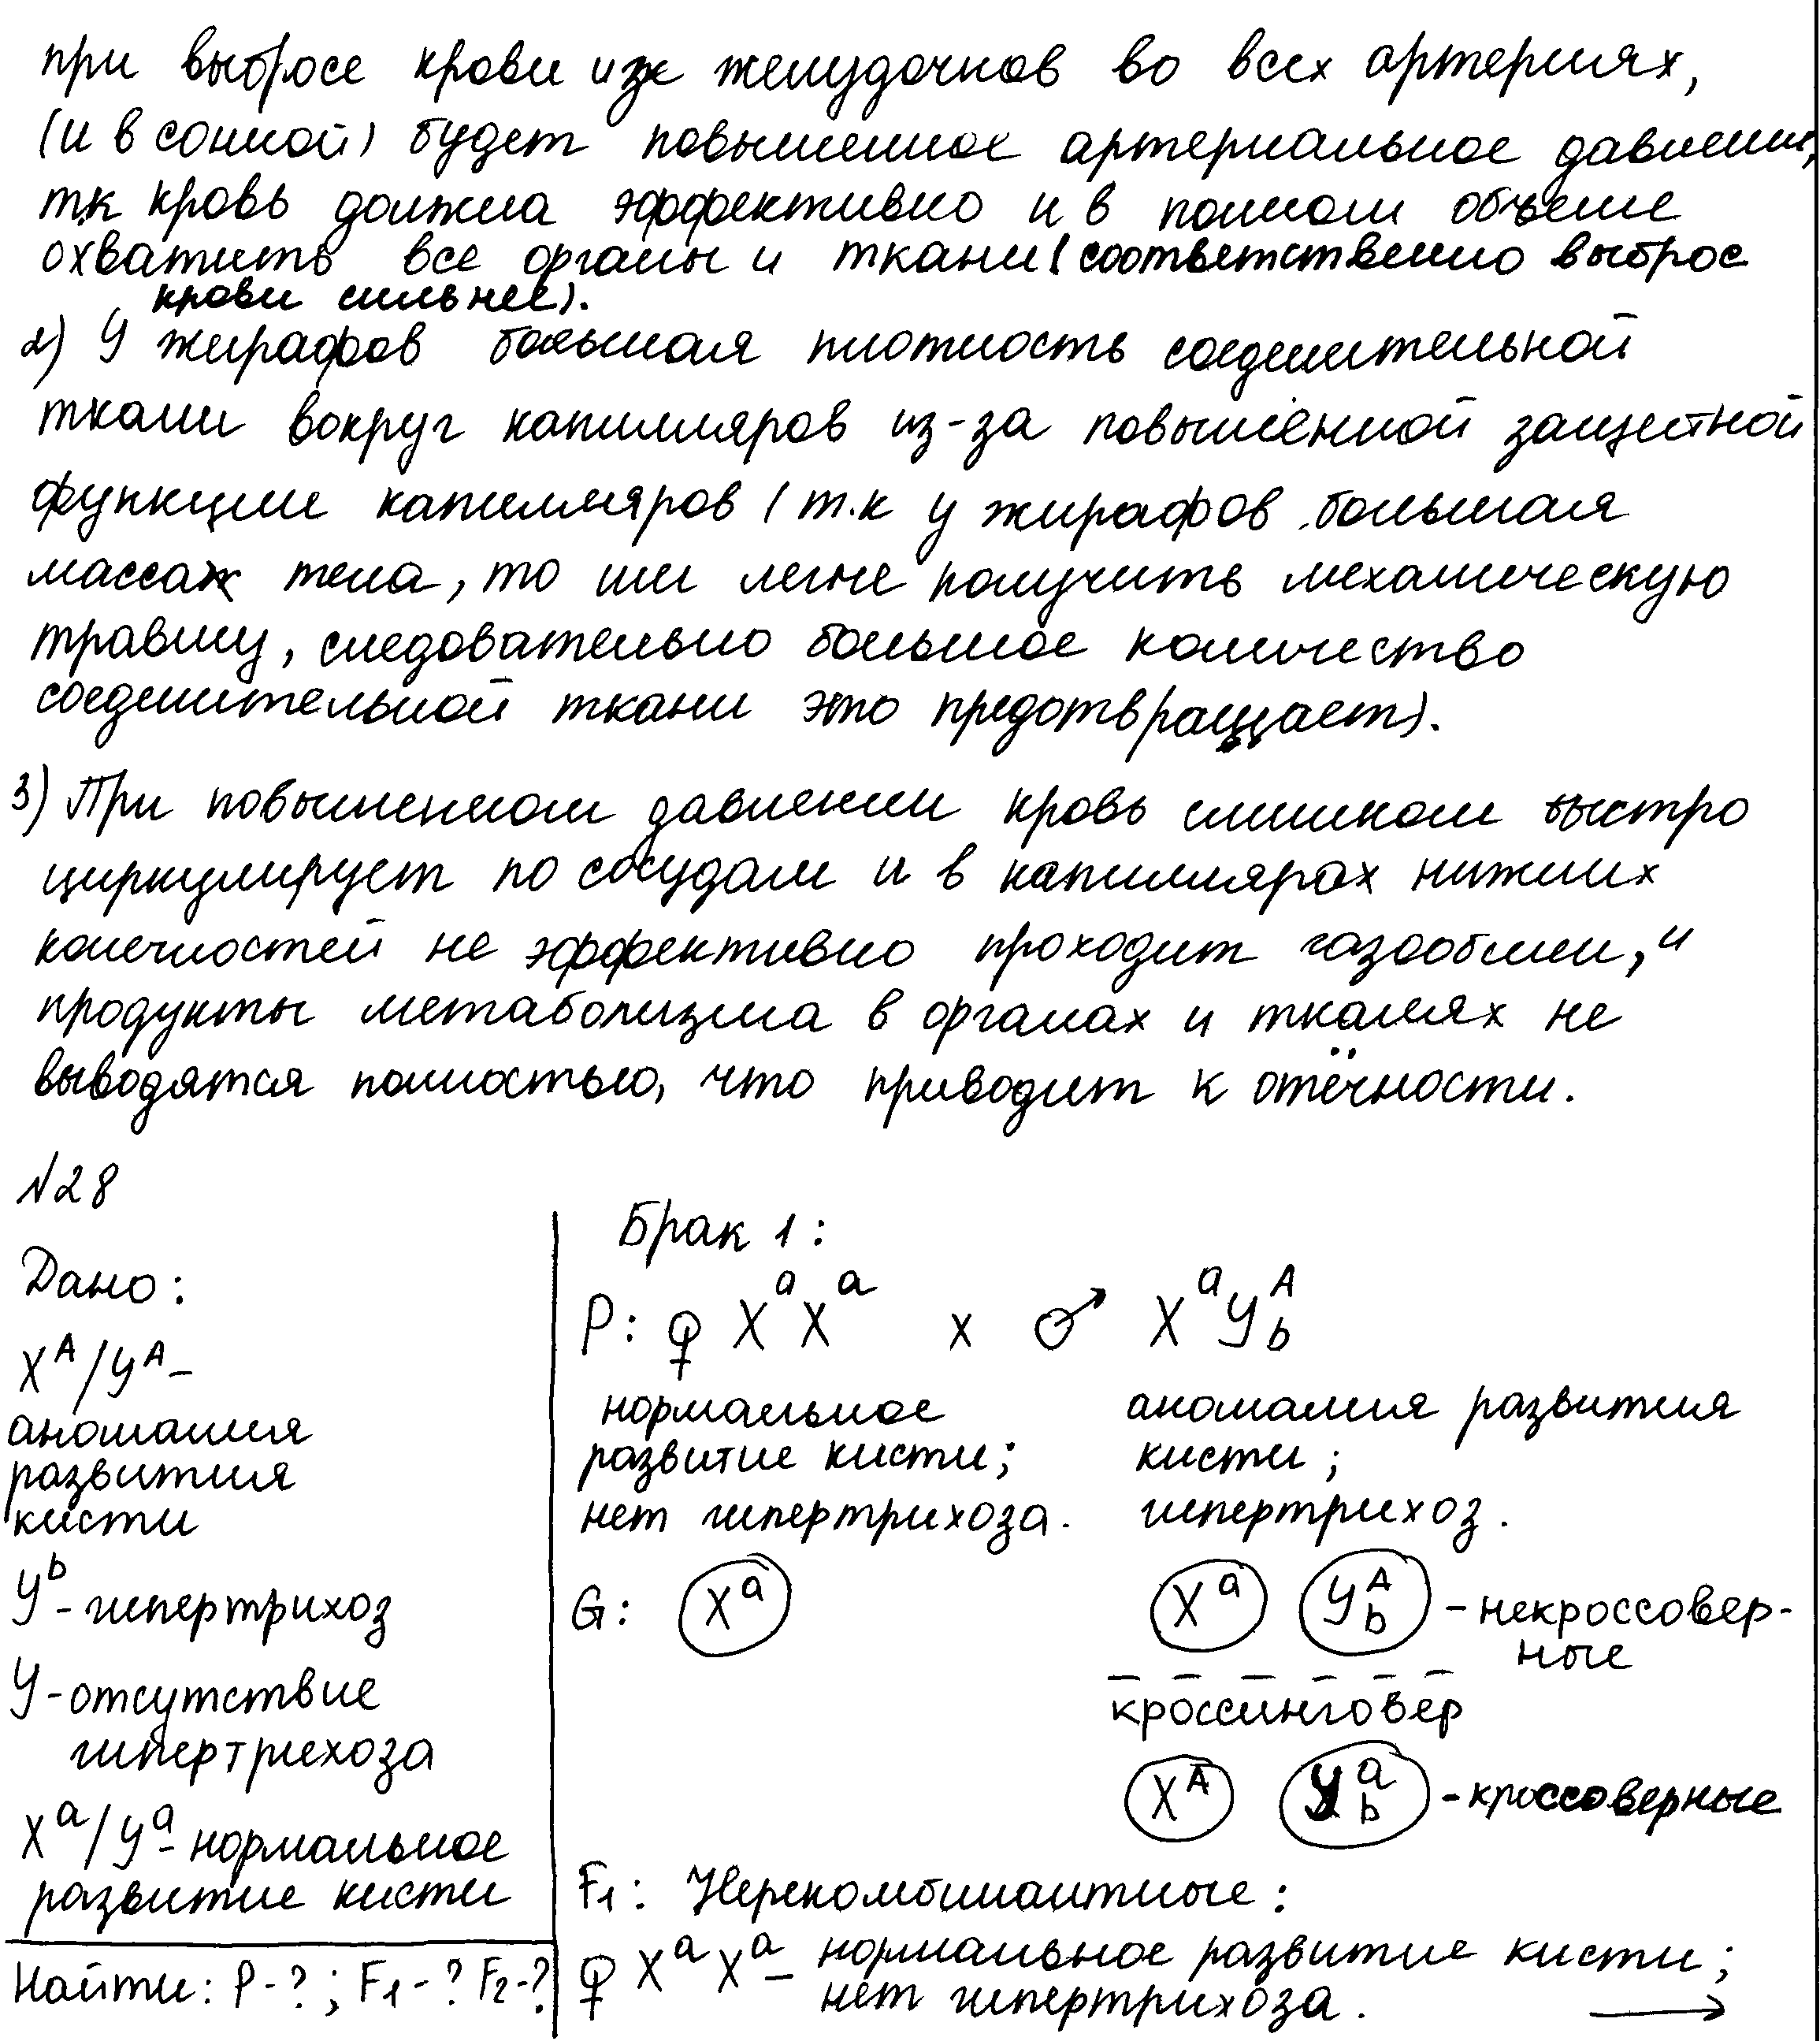 при выбросе крови из желудочков во всех артериях,
(и в сонной) будет повышенное артериальное давление,
тк кровь должна эффективно и в полном объёме
охватить все органы и ткани (соответственно выброс
крови сильнее).
2) У жирафов большая плотность соединительной
ткани вокруг капилляров из-за повышенной защитной
функции капилляров (т.к у жирафов большая
масса тела, то им легче получить механическую
травму, следовательно большое количество
соединительной ткани это предотвращает).
3) При повышенном давлении кровь слишком быстро
циркулирует по сосудам и в капиллярах нижних
конечностей не эффективно проходит газообмен, и
продукты метаболизма в органах и тканях не
выводятся полностью, что приводит к отёчности.
№28
Дано:
X^A/Y^A –
аномалия
развития
кисти
Y^b - гипертрихоз
Y - отсутствие
гипертрихоза
X^a/Y^a - нормальное
развитие кисти
Найти: P-?; F1-? F2-?
Брак 1:
P: ♀ X^a X^a x ♂ X^a Y^A_b
нормальное аномалия развития
развитие кисти; кисти;
нет гипертрихоза. гипертрихоз.
G: X^a X^a Y^A_b - некроссовер-
ные
кроссинговер
X^A Y^a_b - кроссоверные
F1: Нерекомбинантные:
♀ X^a X^a – нормальное развитие кисти;
нет гипертрихоза. →